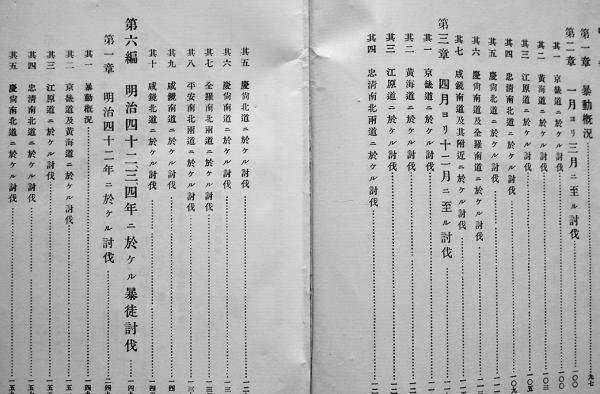 第一章 暴動概況 九七
第二章 一月ヨリ三月ニ至ル討伐 一〇〇
其一 京畿道ニ於ケル討伐 一〇〇
其二 黄海道ニ於ケル討伐 一〇三
其三 江原道ニ於ケル討伐 一〇五
其四 忠清南北道ニ於ケル討伐 一〇九
其五 慶尚北道ニ於ケル討伐
其六 慶尚南道及全羅南道ニ於ケル討伐
其七 咸鏡南道及其附近ニ於ケル討伐
第三章 四月ヨリ十二月ニ至ル討伐
其一 京畿道ニ於ケル討伐
其二 黄海道ニ於ケル討伐
其三 江原道ニ於ケル討伐
其四 忠清南北兩道ニ於ケル討伐
其五 慶尚北道ニ於ケル討伐
其六 慶尚南道ニ於ケル討伐
其七 全羅南北兩道ニ於ケル討伐
其八 平安南北兩道ニ於ケル討伐
其九 咸鏡南道ニ於ケル討伐
其十 咸鏡北道ニ於ケル討伐
第六編 明治四十二三四年ニ於ケル暴徒討伐
第一章 明治四十二年ニ於ケル討伐
其一 暴動概況
其二 京畿道及黄海道ニ於ケル討伐
其三 江原道ニ於ケル討伐
其四 忠清南北道ニ於ケル討伐
其五 慶尚南北道ニ於ケル討伐